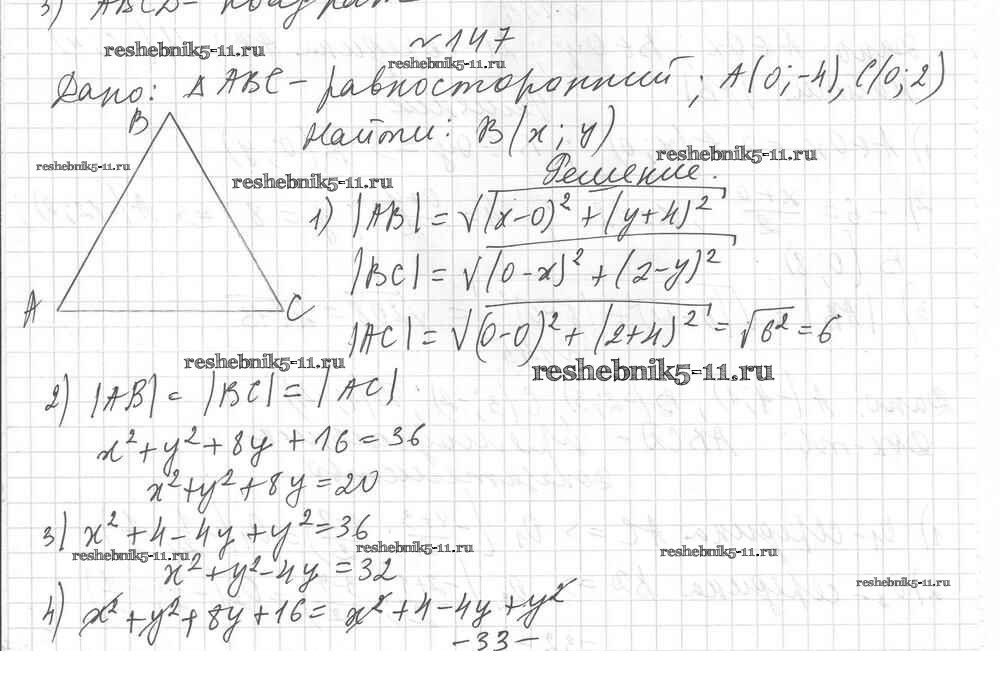 3) ABCD - квадрат
№147
Дано: Δ ABC - равносторонний; A(0;-4), C(0;2)
Найти: B(x; y)
Решение:
1) |AB| = √(x-0)² + (y+4)²
|BC| = √(0-x)² + (2-y)²
|AC| = √(0-0)² + (2+4)² = √6² = 6
2) |AB| = |BC| = |AC|
x² + y² + 8y + 16 = 36
x² + y² + 8y = 20
3) x² + 4 - 4y + y² = 36
x² + y² - 4y = 32
4) x² + y² + 8y + 16 = x² + 4 - 4y + y²
-33-
B
A
C
reshebnik5-11.ru
reshebnik5-11.ru
reshebnik5-11.ru
reshebnik5-11.ru
reshebnik5-11.ru
reshebnik5-11.ru
reshebnik5-11.ru
reshebnik5-11.ru
reshebnik5-11.ru
reshebnik5-11.ru
reshebnik5-11.ru